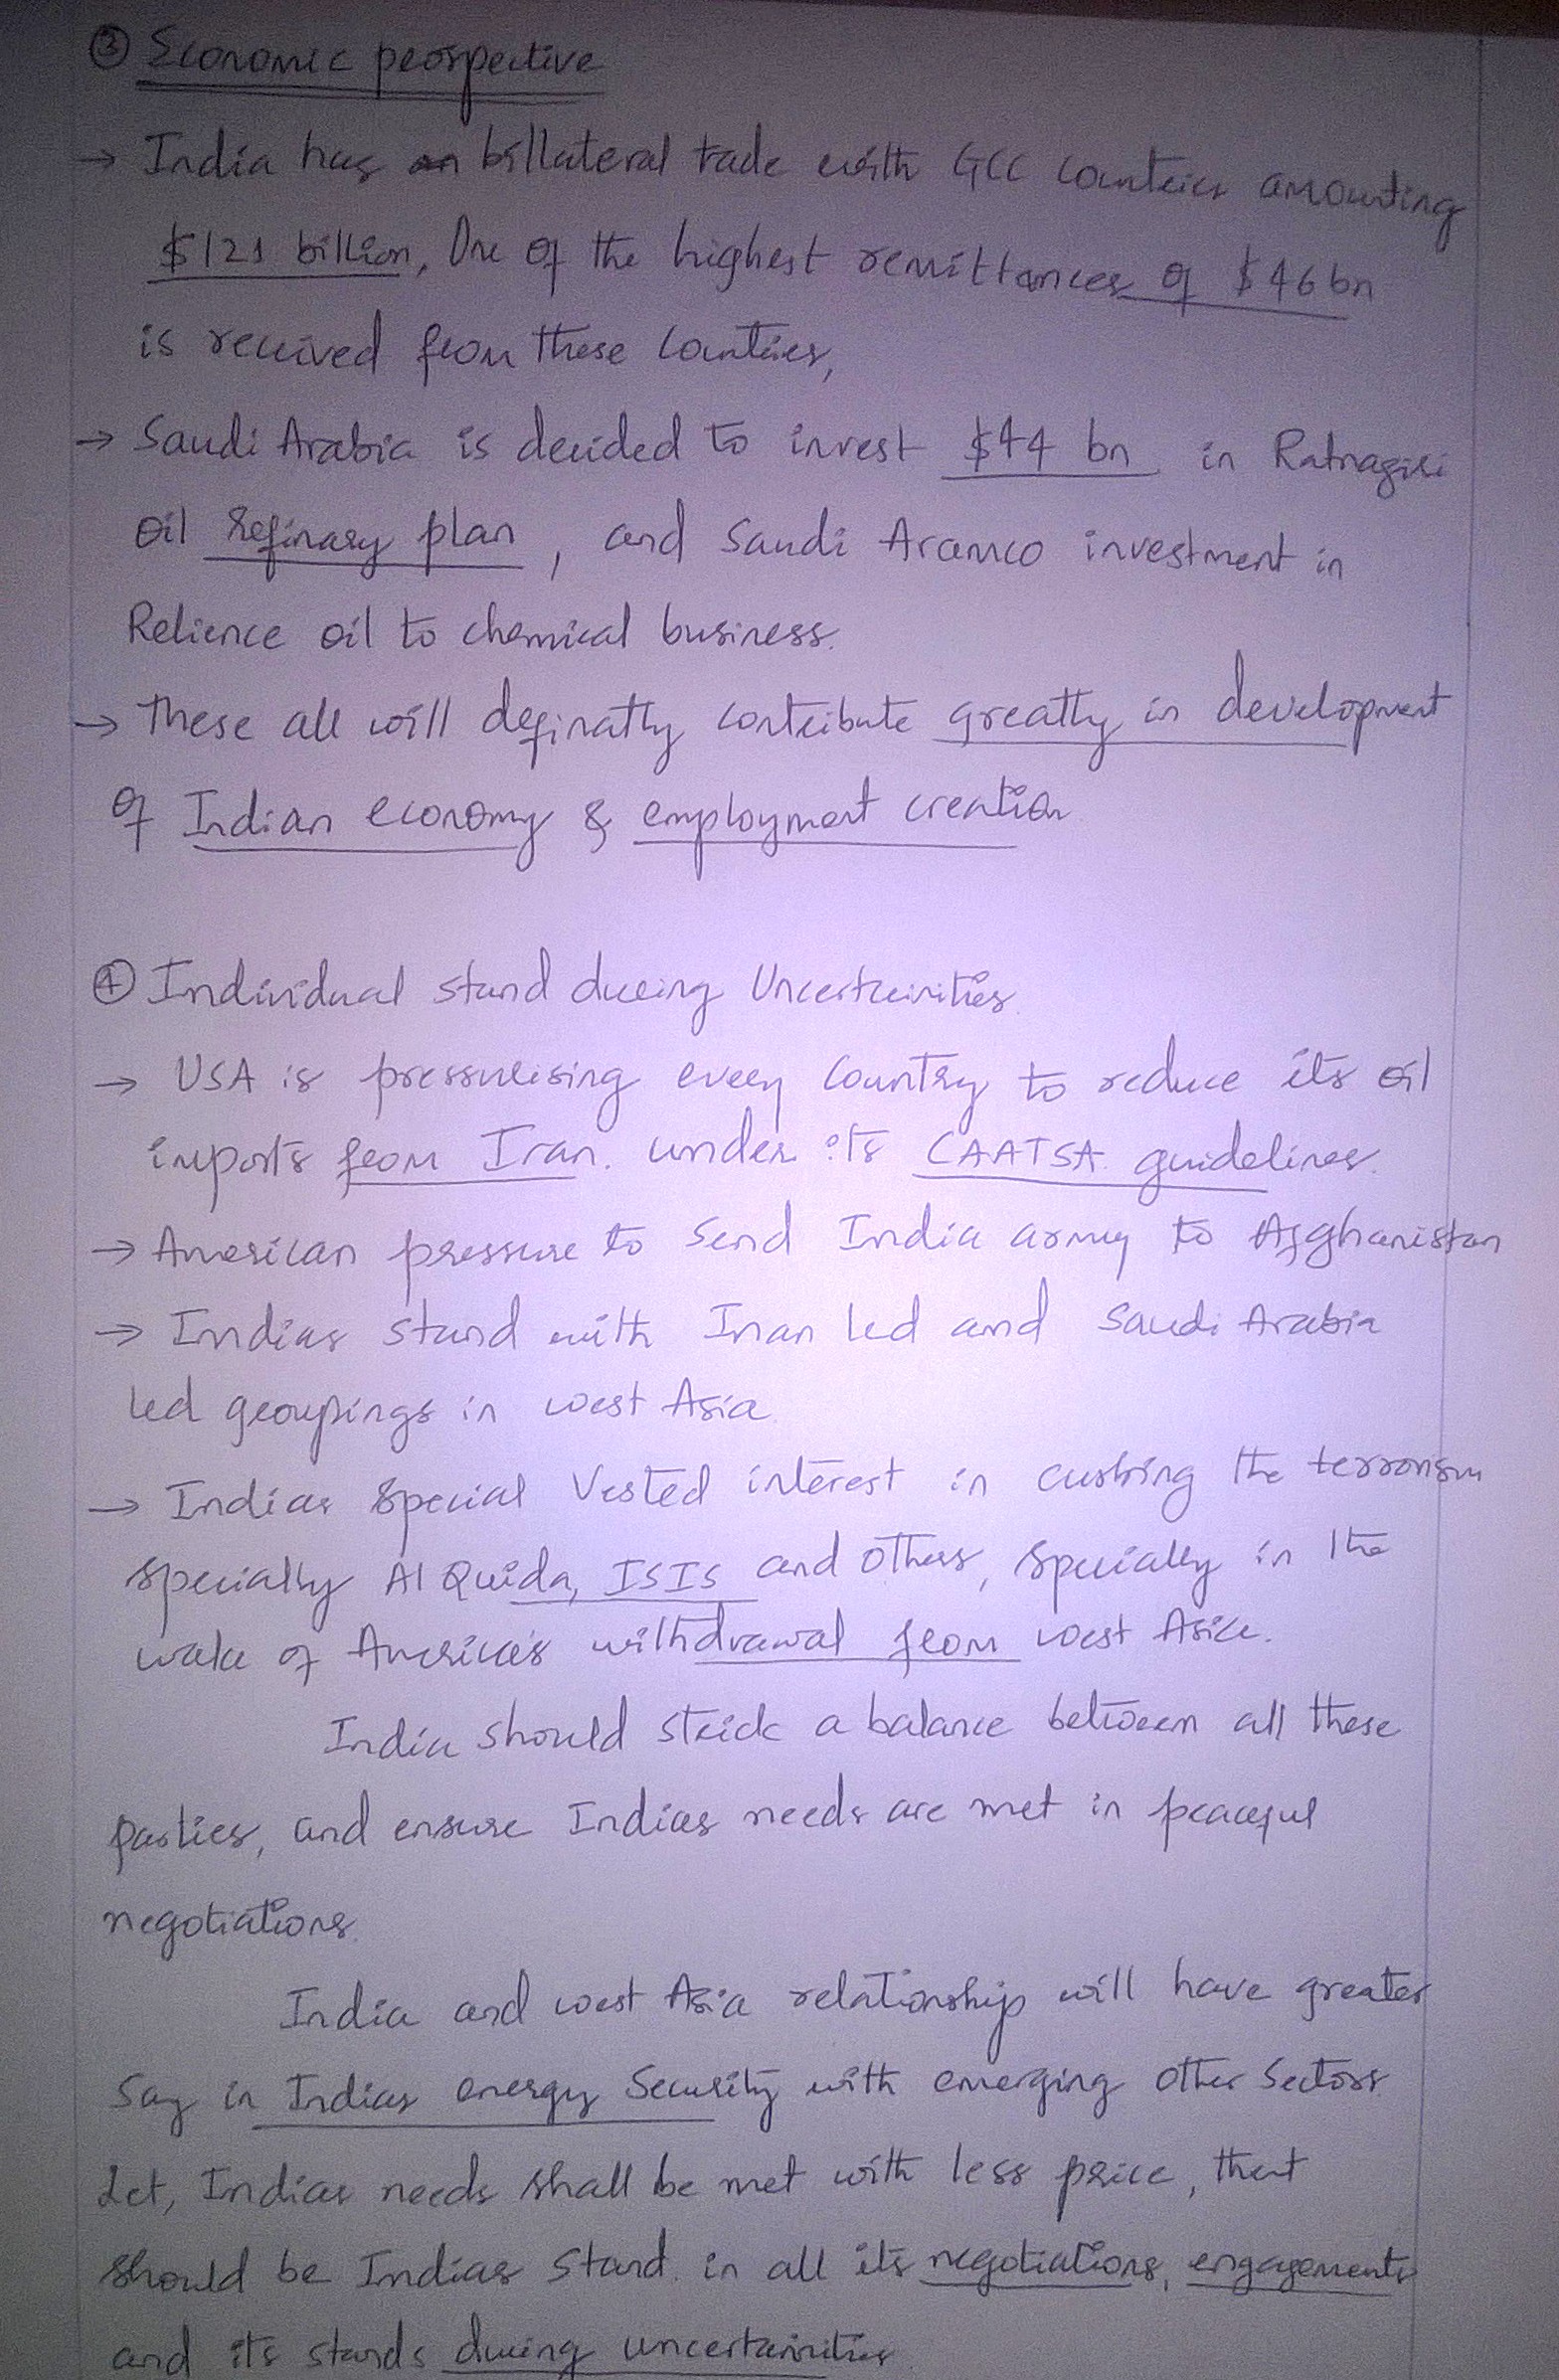 ③ Economic perspective
→ India has billateral trade with GCC countries amounting
$121 billion, One of the highest remittances of $46bn
is received from these countries,
→ Saudi Arabia is decided to invest $44 bn in Ratnagiri
oil Refinary plan, and Saudi Aramco investment in
Relience oil to chemical business.
→ These all will definatly contribute greatly in development
of Indian economy & employment creation
④ Individual stand during Uncertainities
→ USA is pressurising every Country to reduce its oil
imports from Iran. under its CAATSA guidelines.
→ American pressure to send India army to Afghanistan
→ Indias stand with Iran led and Saudi Arabia
led groupings in west Asia
→ Indias special Vested interest in the terrorism
specially Al Quida, ISIS and others, specially in the
wake of America's withdrawal from west Asia.
India should a balance between all these
parties, and ensure Indias needs are met in peaceful
negotiations.
India and west Asia relationship will have greater
Say in Indias energy Security with emerging other Sectors.
Let, Indias needs shall be met with less price, that
should be Indias stand. in all its negotiations, engagements
and its stands during uncertainities.